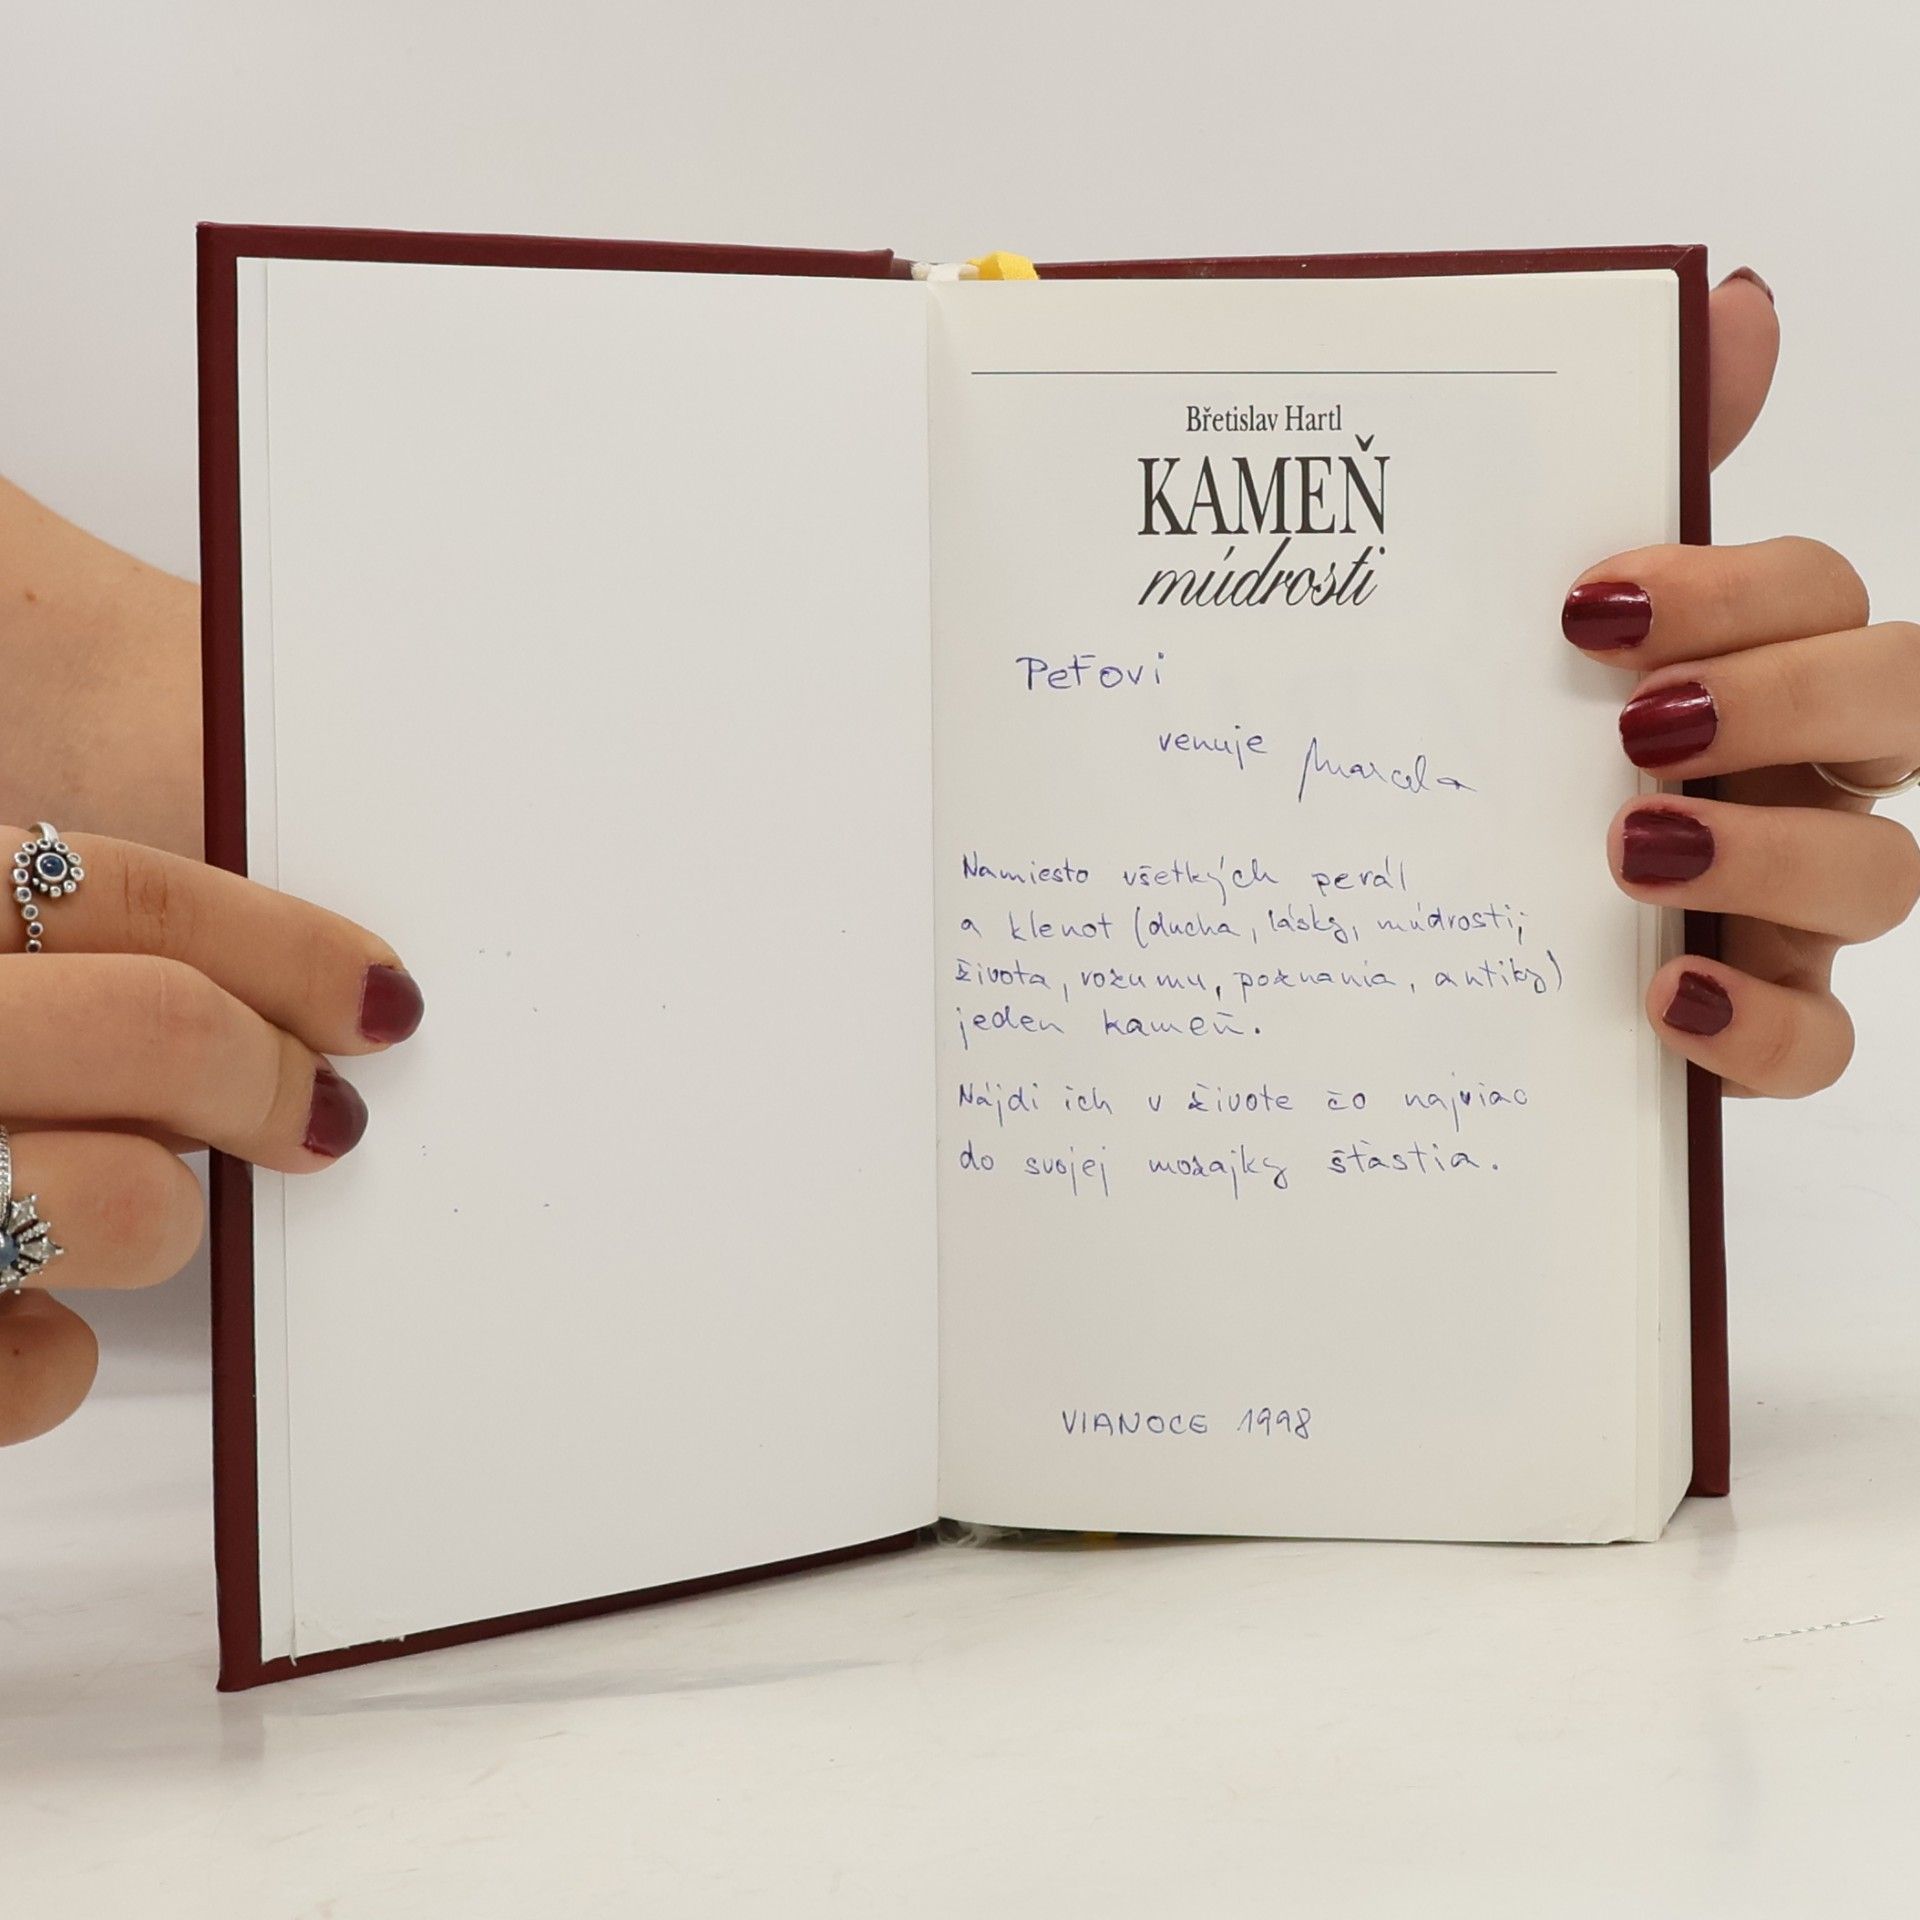 Břetislav Hartl
KAMEŇ
múdrosti
Peťovi
venuje Marcela
Namiesto všetkých perál
a klenot (ducha, lásky, múdrosti,
života, rozumu, poznania, antiky)
jeden kameň.
Nájdi ich v živote čo najviac
do svojej mozajky šťastia.
VIANOCE 1998